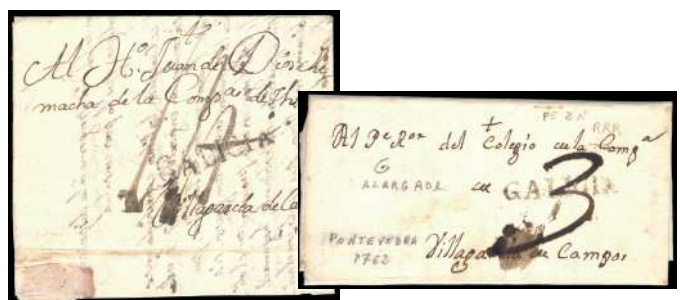 Al H.º Juan de Dios
macha de la Comp.ª de Jhs
GALICIA
Villagarcia de Ca
PE 2N
RRR
Al P.e R.or del Colegio de la Comp.a
G
ALARGADA de GALICIA
3
PONTEVEDRA
1762
Villagarcia de Campos